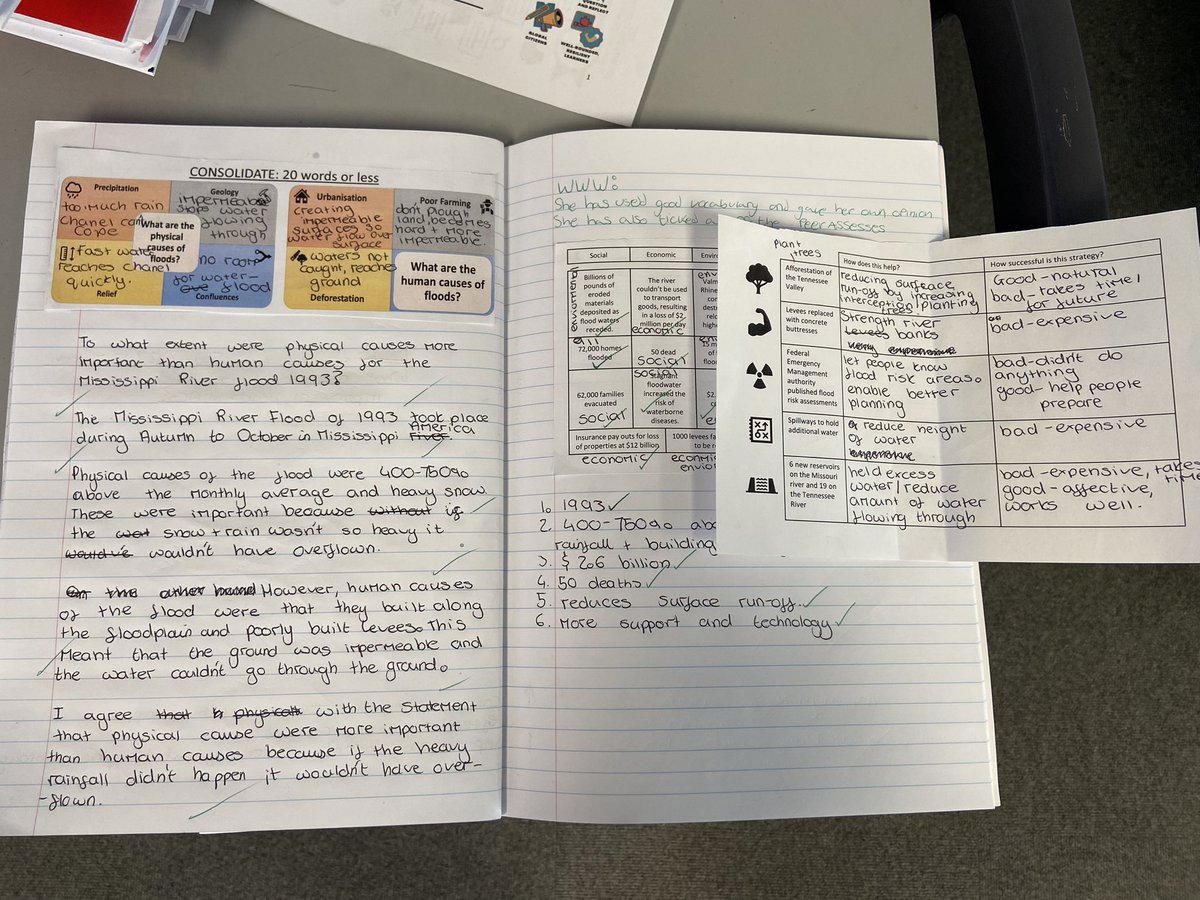 QUESTION
AND REFLECT
GLOBAL
CITIZENS
WELL-ROUNDED,
RESILIENT
LEARNERS
1
CONSOLIDATE: 20 words or less
Precipitation
too much rain
chanel can't
cope
Geology
impermeable
stops water
flowing
through
What are the
physical
causes of
floods?
Fast water
reaches chanel
quickly.
Relief
no room
for water-
flood
Confluences
Urbanisation
creating
impermeable
surfaces so
water flow over
surface
Poor Farming
don't plough
land, becomes
hard + more
impermeable.
waters not
caught, reaches
ground
Deforestation
What are the
human causes of
floods?
To what extent were physical causes more
important than human causes for the
Mississippi River flood 1993?
The Mississippi River Flood of 1993 took place
during Autumn to October in Mississippi America
river.
Physical causes of the flood were 400-750%
above the monthly average and heavy snow.
These were important because without if
the wat snow + rain wasn't so heavy it
would've wouldn't have overflown.
On the other hand However, human causes
of the flood were that they built along
the floodplain and poorly built levees. This
meant that the ground was impermeable and
the water couldn't go through the ground.
I agree that physical with the statement
that physical cause were more important
than human causes because if the heavy
rainfall didn't happen it wouldn't have over-
-flown.
WWW:
She has used good vocabulary and gave her own opinion
She has also ticked Peer Assesses
Social
Economic
Enviro
Billions of
pounds of
eroded
materials
deposited as
flood waters
receded.
enviormental
The river
couldn't be used
to transport
goods, resulting
in a loss of $2
million per day
economic
72,000 homes
flooded
50 dead
social
62,000 families
evacuated
social
social
Stagnant
floodwater
increased the
risk of
waterborne
diseases.
Insurance pay outs for loss
of properties at $12 billion
economic
1000 levees fa
to be re
1. 1993
2. 400-750% abo
rainfall + building
3. $2.6 billion
4. 50 deaths
5. reduces surface run-off.
6. More support and technology
Plant
trees
How does this help?
How successful is this strategy?
Afforestation of
the Tennessee
Valley
reducing surface
run-off by increasing
interception planting
trees
Good-natural
bad-takes time/
for future
Levees replaced
with concrete
buttresses
Strength river
levees banks
bad-expensive
Federal
Emergency
Management
authority
published flood
risk assessments
let people know
flood risk areas.
enable better
planning
bad-didn't do
anything
good-help people
prepare
Spillways to hold
additional water
reduce height
of water
bad-expensive
6 new reservoirs
on the Missouri
river and 19 on
the Tennessee
River
held excess
water/reduce
amount of water
flowing through
bad-expensive, takes
time
good-affective,
works well.